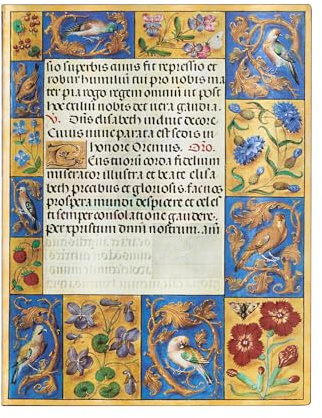 sio superbis cuius fit repressio et
robur humilui tui pro nobis ma
ter pia rogo regem omniū ut post
hoc exilui nobis det uera gaudia.
V. Diffusa helisabeth in diue decore
Cuius nunc parata est sedis in
honore Oremus. Oro.
Ensuorū corda fidelium
miserator illustra et beate elisa
beth precibus et gloriosis fac nos
prospera mundi despicere et celes
ti semper consolatione gaudere.
Per xpistum dnm nostrum. am